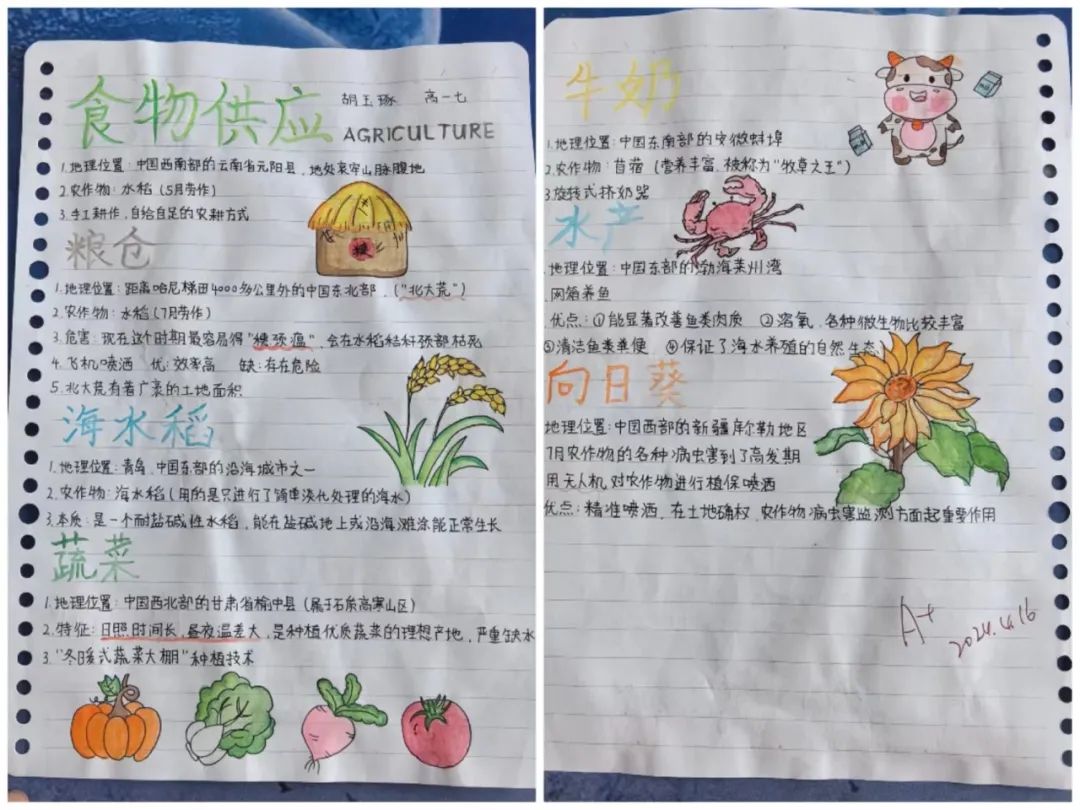 食物供应
胡玉琢 高一七
AGRICULTURE
1.地理位置:中国西南部的云南省元阳县,地处哀牢山脉腹地
2.农作物:水稻(5月劳作)
3.手工耕作,自给自足的农耕方式
粮仓
1.地理位置:距离哈尼梯田4000多公里外的中国东北部,("北大荒")
2.农作物:水稻(7月劳作)
3.危害:现在这个时期最容易得"穗颈瘟",会在水稻秸秆颈部枯死
4.飞机喷洒 优:效率高 缺:存在危险
5.北大荒有着广袤的土地面积
海水稻
1.地理位置:青岛,中国东部的沿海城市之一
2.农作物:海水稻(用的是只进行了简单淡化处理的海水)
3.本质:是一个耐盐碱性水稻,能在盐碱地上或沿海滩涂能正常生长
蔬菜
1.地理位置:中国西北部的甘肃省榆中县(属于石质高寒山区)
2.特征:日照时间长,昼夜温差大,是种植优质蔬菜的理想产地,严重缺水
3."冬暖式蔬菜大棚"种植技术
牛奶
1.地理位置:中国东南部的安徽蚌埠
2.农作物:苜蓿(营养丰富,被称为"牧草之王")
3.旋转式挤奶器
水产
.地理位置:中国东部的渤海莱州湾
.网箱养鱼
.优点:①能显著改善鱼类肉质 ②溶氧,各种微生物比较丰富
③清洁鱼粪单便 ④保证了海水养殖的自然生态
向日葵
地理位置:中国西部的新疆库尔勒地区
7月农作物的各种病虫害到了高发期
用无人机对农作物进行植保喷洒
优点:精准喷洒,在土地确权,农作物病虫害监测方面起重要作用
A+
2024.4.16